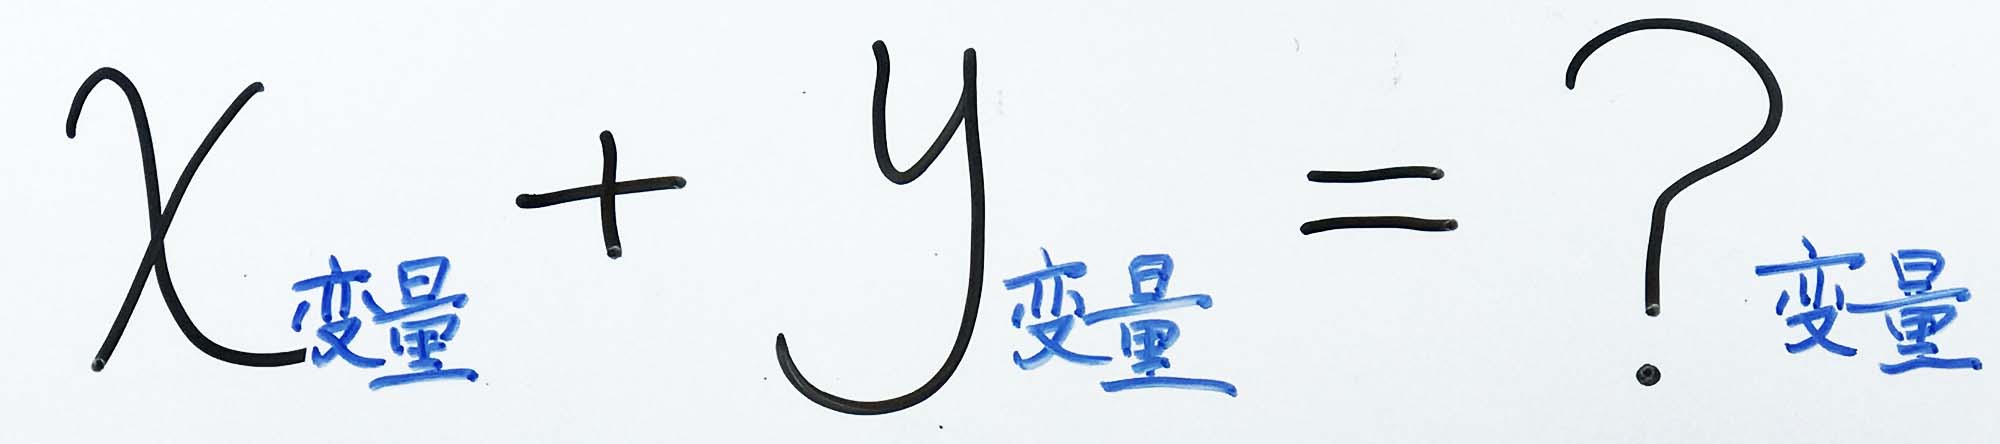 x变量 + y变量 = ?变量